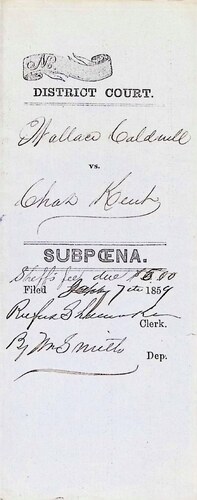 No.
DISTRICT COURT.
Wallace Caldwell
vs.
Chas Kent
SUBPŒNA.
Sheff's fees due $5.00
Filed 7th 1859
Rufus
Clerk.
By Wm Smith
Dep.